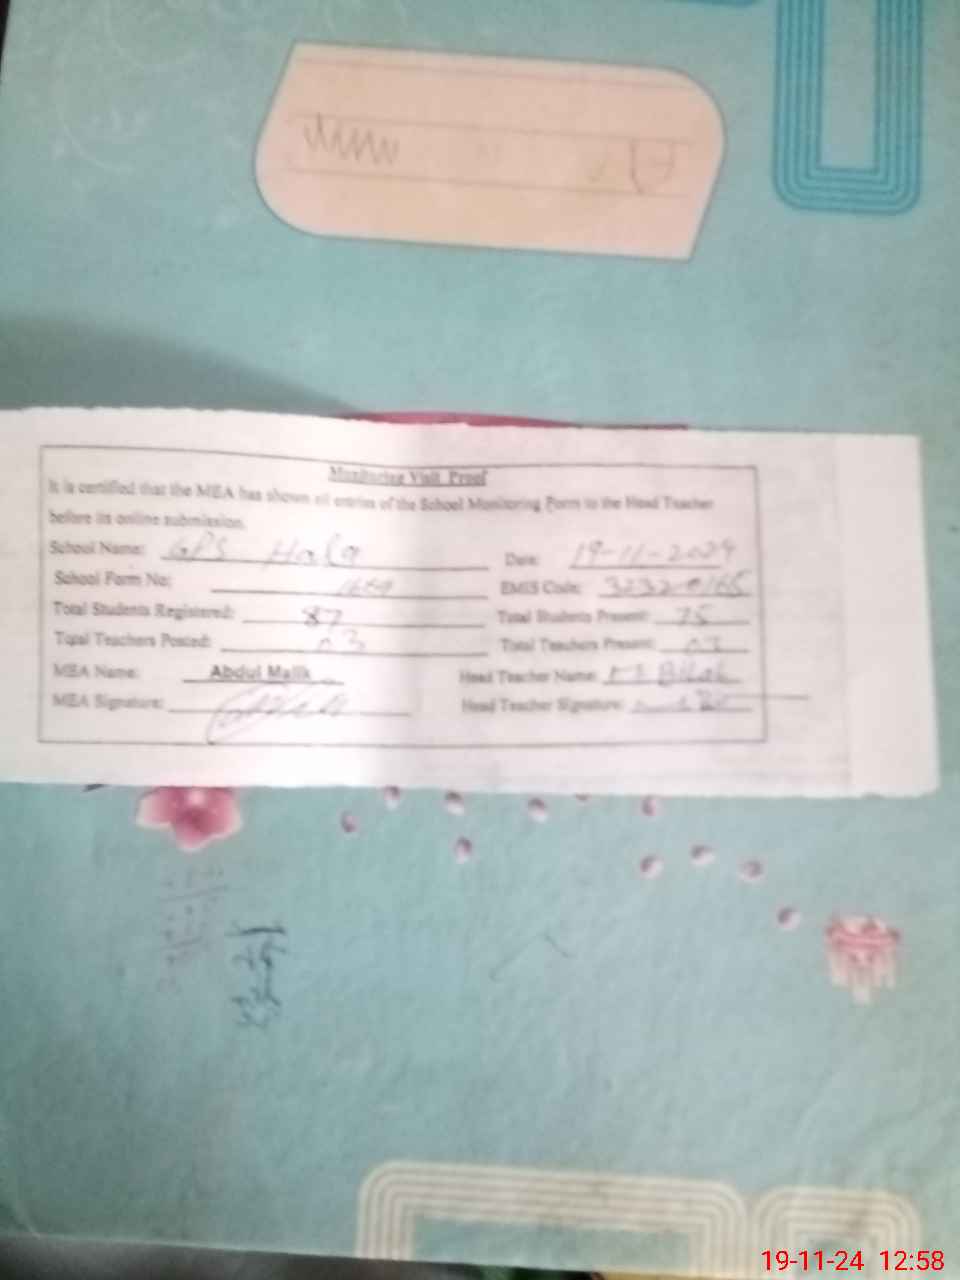 Monitoring Visit Proof
It is certified that the MEA has shown all entries of the School Monitoring Form to the Head Teacher
before its online submission.
School Name: GPS Hala Date: 19-11-2024
School Form No: EMIS Code: 32320165
Total Students Registered: 87 Total Students Present: 75
Total Teachers Posted: 03 Total Teachers Present: 03
MEA Name: Abdul Malik Head Teacher Name: Bilal
MEA Signature: Head Teacher Signature:
19-11-24 12:58